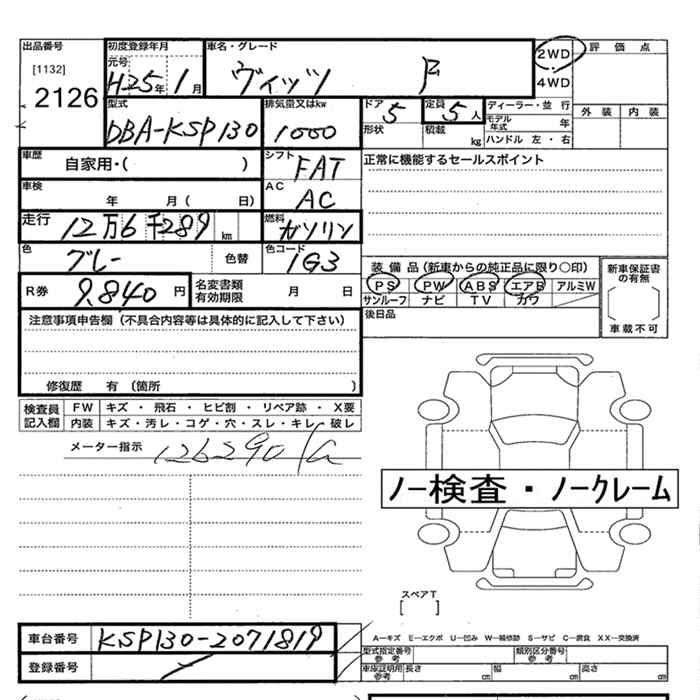 出品番号 初度登録年月 車名・グレード 2WD 評価点
[1132] 元号 H25年 1月 ヴィッツ F 4WD
2126 型式 排気量又はkw ドア 5 定員 5人 ディーラー・並行 外装 内装
DBA-KSP130 1000 形状 積載 kg モデル年式 年
ハンドル 左・右
車歴 自家用・( ) シフト FAT 正常に機能するセールスポイント
車検 年 月( 日) AC AC
走行 12万6千289 km 燃料 ガソリン
色 グレー 色替 色コード 1G3 装備品(新車からの純正品に限り〇印) 新車保証書の有無
R券 9,840円 名変書類有効期限 月 日 PS PW ABS エアB アルミW
サンルーフ ナビ TV カワ 車載不可
注意事項申告欄(不具合内容等は具体的に記入して下さい) 後日品
修復歴 有 (箇所 )
検査員記入欄 FW キズ・飛石・ヒビ割・リペア跡・X要
内装 キズ・汚レ・コゲ・穴・スレ・キレ・破レ
メーター指示 126290
ノー検査・ノークレーム
スペアT
[ ]
車台番号 KSP130-2071819 A―キズ E―エクボ U―凹み W―補修跡 S―サビ C―腐食 XX―交換済
型式指定番号 参考 類別区分番号 参考
登録番号 車庫証明用参考 長さ cm 幅 cm 高さ cm